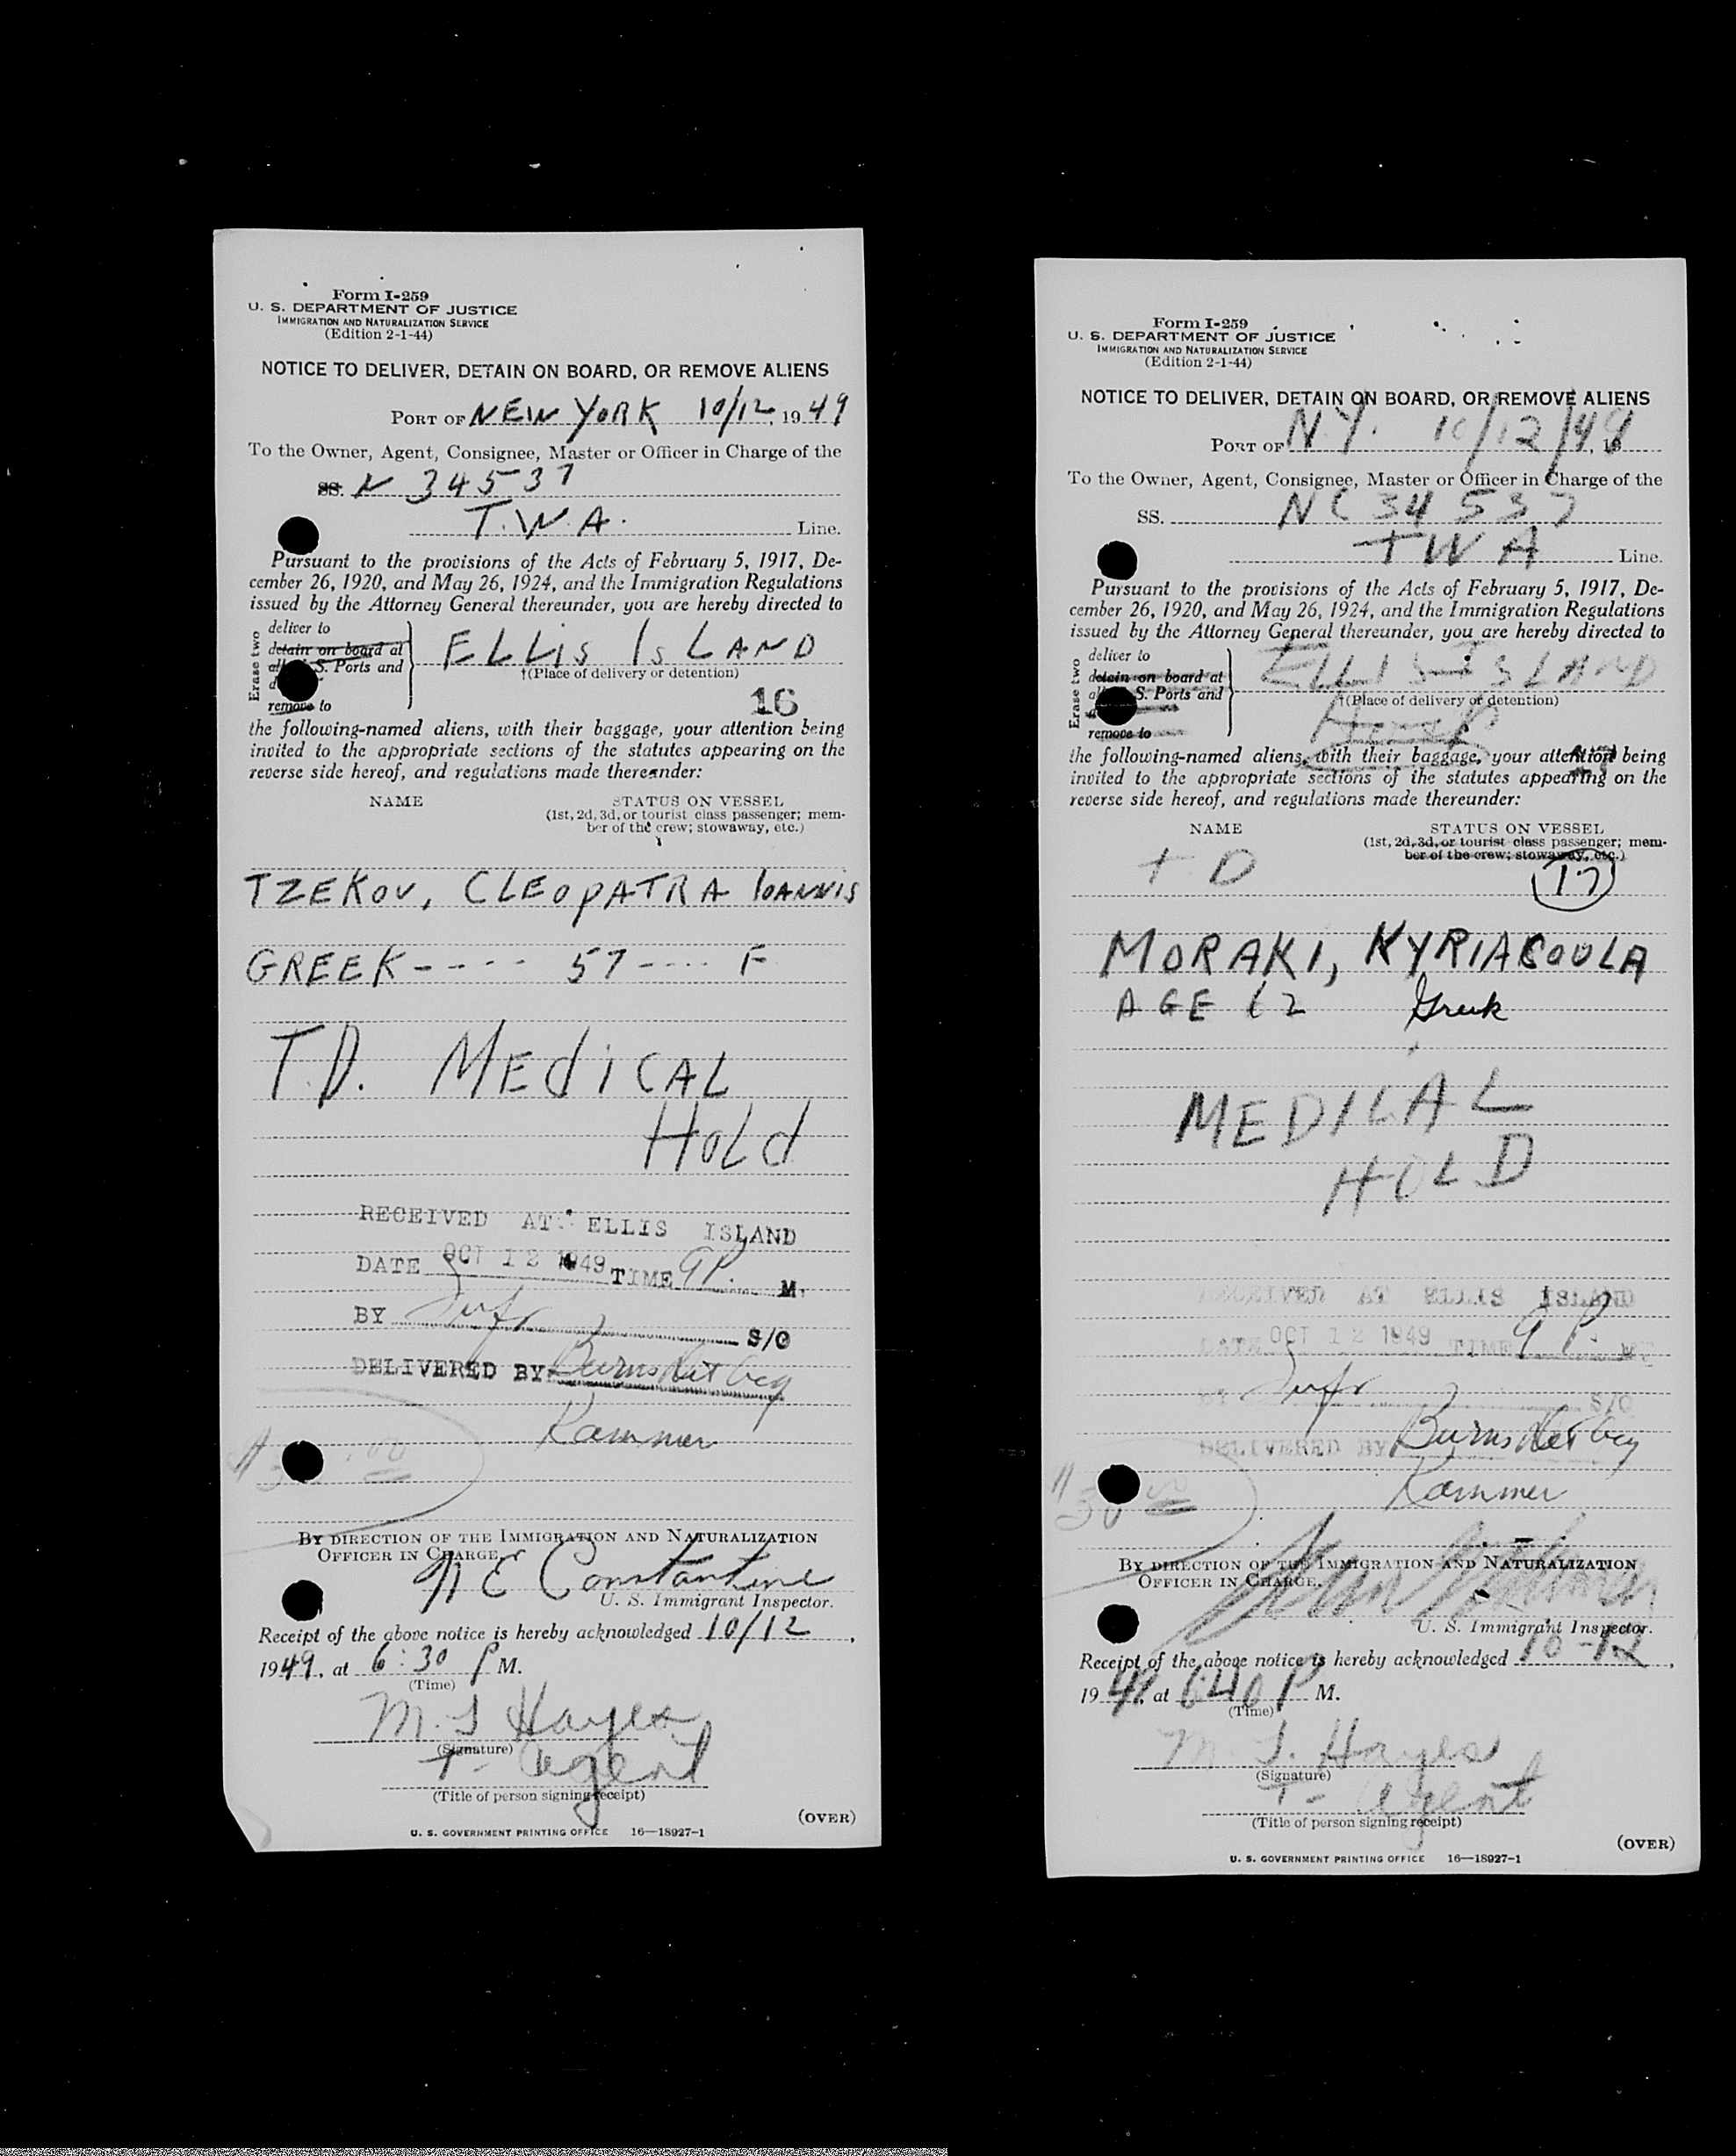 Form I-259
U. S. DEPARTMENT OF JUSTICE
IMMIGRATION AND NATURALIZATION SERVICE
(Edition 2-1-44)
NOTICE TO DELIVER, DETAIN ON BOARD, OR REMOVE ALIENS
PORT OF NEW YORK 10/12, 1949
To the Owner, Agent, Consignee, Master or Officer in Charge of the
SS. N 34537
T.W.A. Line.
Pursuant to the provisions of the Acts of February 5, 1917, De-
cember 26, 1920, and May 26, 1924, and the Immigration Regulations
issued by the Attorney General thereunder, you are hereby directed to
Erase two
deliver to
detain on board at
S. Ports and
remove to
ELLIS ISLAND
†(Place of delivery or detention)
16
the following-named aliens, with their baggage, your attention being
invited to the appropriate sections of the statutes appearing on the
reverse side hereof, and regulations made thereunder:
NAME STATUS ON VESSEL
(1st, 2d, 3d, or tourist class passenger; mem-
ber of the crew; stowaway, etc.)
TZEKOV, CLEOPATRA IOANNIS
GREEK ---- 57 ---- F
T.D. MEdiCAL
HOLd
RECEIVED AT ELLIS ISLAND
DATE OCT 12 1949 TIME 9 P. M.
BY S/O
DELIVERED BY Burns Det Acy
Rammer
BY DIRECTION OF THE IMMIGRATION AND NATURALIZATION
OFFICER IN CHARGE.
N E Constantine
U. S. Immigrant Inspector.
Receipt of the above notice is hereby acknowledged 10/12,
1949, at 6:30 P M.
(Time)
M. J Hayes
(Signature)
T- Agent
(Title of person signing receipt)
(OVER)
U. S. GOVERNMENT PRINTING OFFICE 16—18927-1
Form I-259
U. S. DEPARTMENT OF JUSTICE
IMMIGRATION AND NATURALIZATION SERVICE
(Edition 2-1-44)
NOTICE TO DELIVER, DETAIN ON BOARD, OR REMOVE ALIENS
PORT OF N.Y. 10/12/49, 19
To the Owner, Agent, Consignee, Master or Officer in Charge of the
SS. NC 34537
TWA Line.
Pursuant to the provisions of the Acts of February 5, 1917, De-
cember 26, 1920, and May 26, 1924, and the Immigration Regulations
issued by the Attorney General thereunder, you are hereby directed to
Erase two
deliver to
detain on board at
S. Ports and
remove to
ELLIS ISLAND
†(Place of delivery or detention)
the following-named aliens, with their baggage, your attention being
invited to the appropriate sections of the statutes appearing on the
reverse side hereof, and regulations made thereunder:
NAME STATUS ON VESSEL
(1st, 2d, 3d, or tourist class passenger; mem-
ber of the crew; stowaway, etc.)
T D 17
MORAKI, KYRIACOULA
AGE 62 Greek
MEDICAL
HOLD
RECEIVED AT ELLIS ISLAND
DATE OCT 12 1949 TIME 9 P. M.
BY S/O
DELIVERED BY Burns Det Acy
Rammer
BY DIRECTION OF THE IMMIGRATION AND NATURALIZATION
OFFICER IN CHARGE.
U. S. Immigrant Inspector.
Receipt of the above notice is hereby acknowledged 10-12,
1949, at 640 P M.
(Time)
M J. Hayes
(Signature)
T- Agent
(Title of person signing receipt)
(OVER)
U. S. GOVERNMENT PRINTING OFFICE 16—18927-1